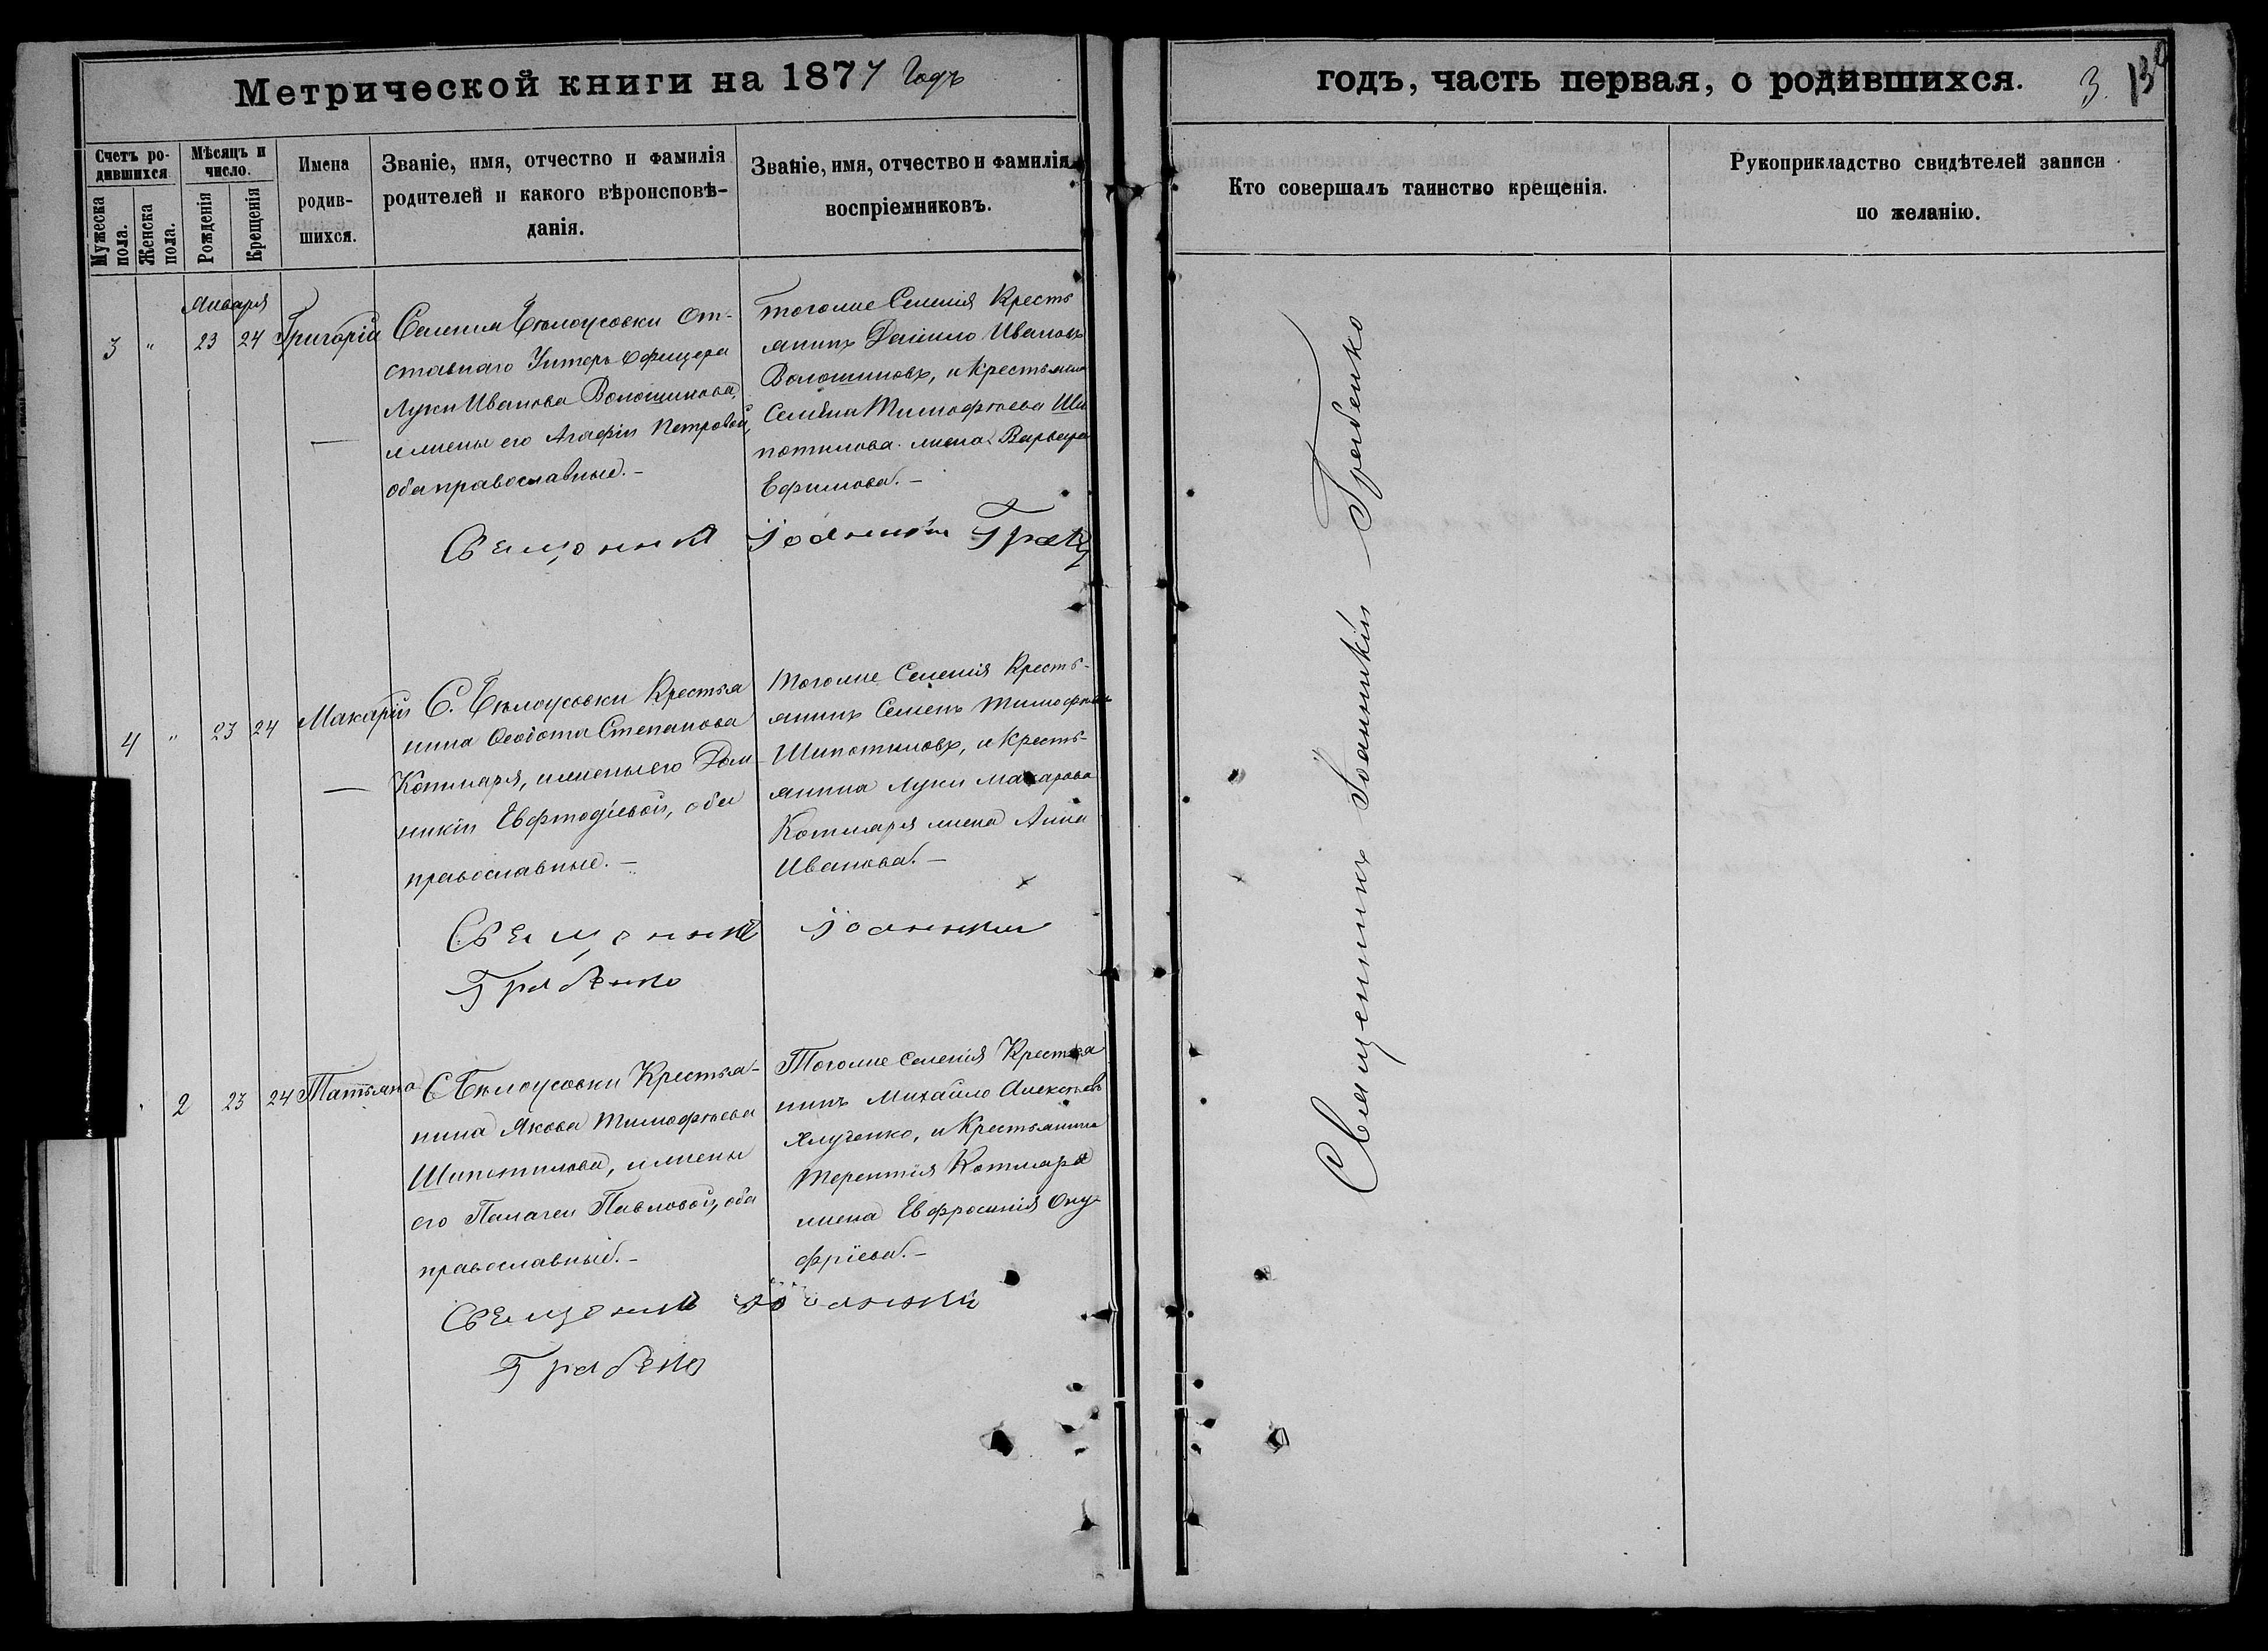 Метрической книги на 1877 Годъ
годъ, часть первая, о родившихся.
3.
Счетъ ро-
дившихся
Мужеска
пола.
Женска
пола.
Мѣсяцъ и
число.
Рожденія
Крещенія
Имена
родив-
шихся.
Званіе, имя, отчество и фамилія
родителей и какого вѣроисповѣ-
данія.
Званіе, имя, отчество и фамилія
воспріемниковъ.
Кто совершалъ таинство крещенія.
Рукоприкладство свидѣтелей записи
по желанію.
Января
3 " 23 24 Григорій
Селенія Бѣлоусовки От-
ставнаго Унтеръ Офицера
Луки Иванова Волошинова,
и жены его Агафіи Петровой,
оба православные. –
Тогоже Селенія Кресть
янинъ Данило Ивановъ
Волошиновъ, и крестьянина
Семена Тимофѣева Ши
потилова жена Варвара
Ефимова. –
Священикъ Іоанникій
4 " 23 24 Макарій
С. Бѣлоусовки Крестья
нина Ѳеодота Степанова
Котляра, и жены его Дом-
никіи Евфтодіевой, оба
православные. –
Тогоже Селенія Кресть-
янинъ Семенъ Тимофѣевъ
Шипотиловъ, и кресть-
янина Луки Макарова
Котляра жена Анна
Иванова. –
Священикъ Іоанникій
Грабенко
2 23 24 Татьяна
С Бѣлоусовки Крестья-
нина Якова Тимофѣева
Шипотилова, и жены
его Палагеи Павловой, оба
православные. –
Тогоже селенія Крестья
нинъ Михайло Алексѣевъ
и Крестьянина
Терентія Котляра
жена Евфросинія Ону-
фріева. –
Священикъ Іоанникій
Грабенко
Священникъ Іоанникій Грабенко